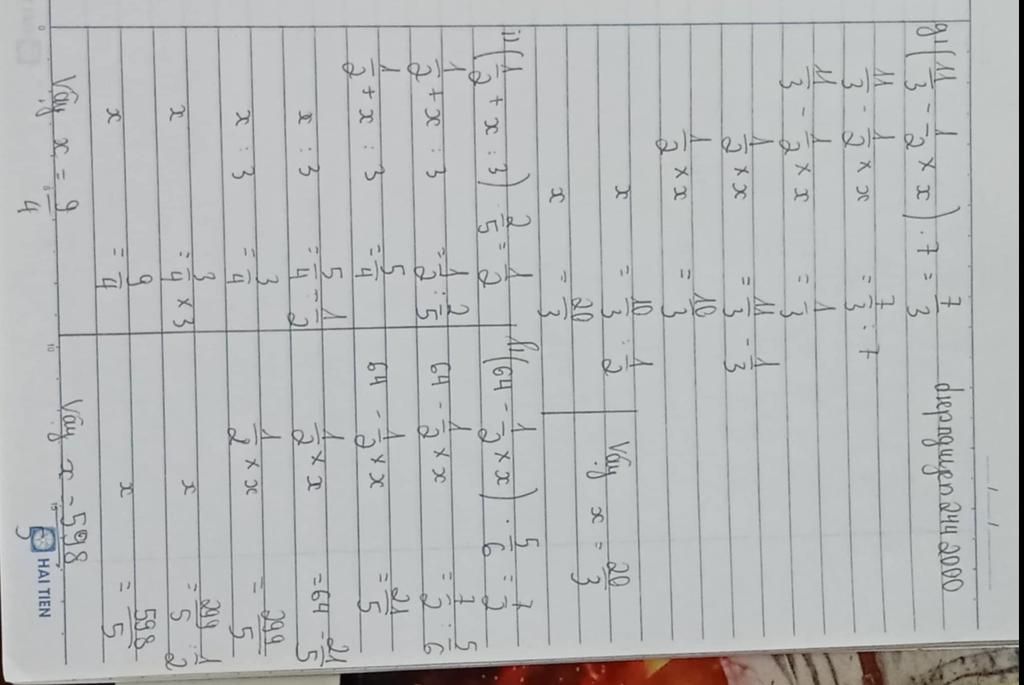 diepnguyen2442000
g, (11/3 - 1/2 × x) . 7 = 7/3
11/3 - 1/2 × x = 7/3 : 7
11/3 - 1/2 × x = 1/3
1/2 × x = 11/3 - 1/3
1/2 × x = 10/3
x = 10/3 : 1/2
x = 20/3
Vậy x = 20/3
i, (1/2 + x : 3) . 2/5 = 1/2
1/2 + x : 3 = 1/2 : 2/5
1/2 + x : 3 = 5/4
x : 3 = 5/4 - 1/2
x : 3 = 3/4
x = 3/4 × 3
x = 9/4
Vậy x = 9/4
h, (64 - 1/2 × x) . 5/6 = 7/2
64 - 1/2 × x = 7/2 : 5/6
64 - 1/2 × x = 21/5
1/2 × x = 64 - 21/5
1/2 × x = 299/5
x = 299/5 : 1/2
x = 598/5
Vậy x = 598/5
HAI TIEN
0
10